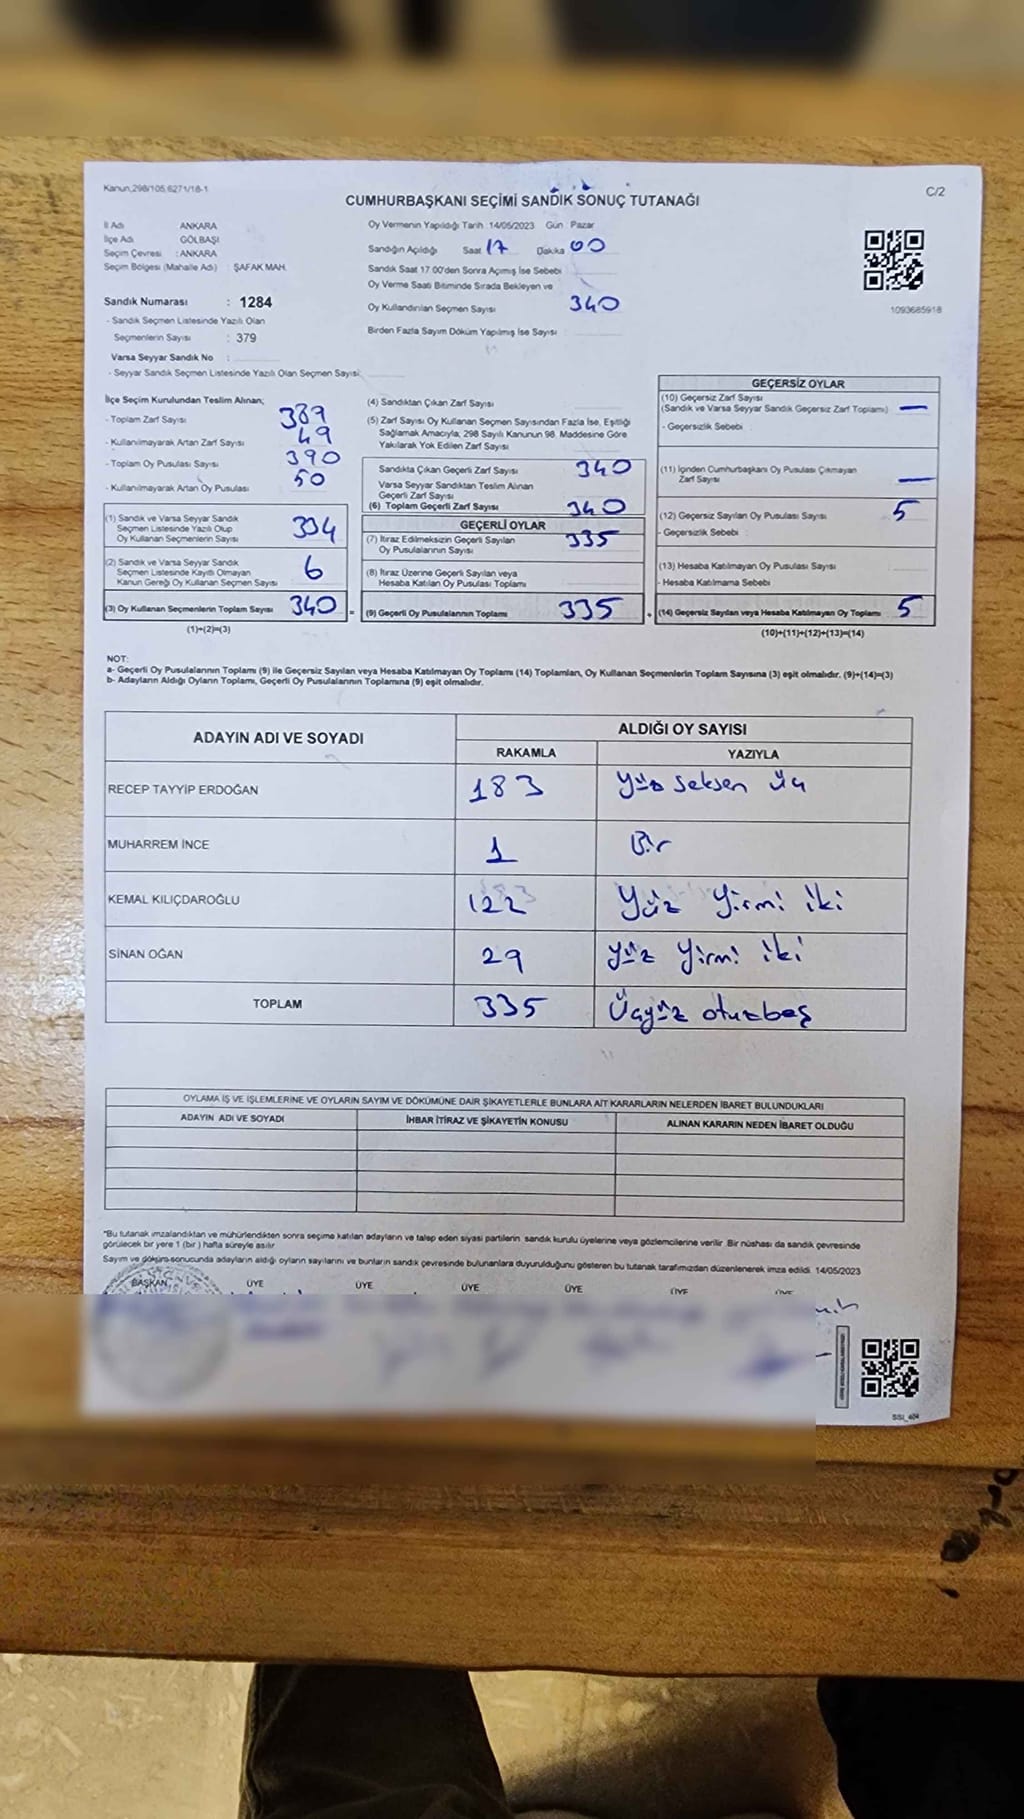 Kanun,298/105,6271/18-1
C/2
CUMHURBAŞKANI SEÇİMİ SANDIK SONUÇ TUTANAĞI
İl Adı ANKARA
İlçe Adı GÖLBAŞI
Seçim Çevresi : ANKARA
Seçim Bölgesi (Mahalle Adı) : ŞAFAK MAH.
Oy Vermenin Yapıldığı Tarih :14/05/2023 Gün : Pazar
Sandığın Açıldığı Saat 17 Dakika 00
Sandık Saat 17.00'den Sonra Açımış İse Sebebi
Oy Verme Saati Bitiminde Sırada Bekleyen ve
Oy Kullandırılan Seçmen Sayısı 340
Birden Fazla Sayım Döküm Yapılmış İse Sayısı
1093685918
Sandık Numarası : 1284
- Sandık Seçmen Listesinde Yazılı Olan
Seçmenlerin Sayısı : 379
Varsa Seyyar Sandık No :
- Seyyar Sandık Seçmen Listesinde Yazılı Olan Seçmen Sayısı
İlçe Seçim Kurulundan Teslim Alınan;
- Toplam Zarf Sayısı 389
- Kullanılmayarak Artan Zarf Sayısı 49
- Toplam Oy Pusulası Sayısı 390
- Kullanılmayarak Artan Oy Pusulası 50
(1) Sandık ve Varsa Seyyar Sandık
Seçmen Listesinde Yazılı Olup
Oy Kullanan Seçmenlerin Sayısı 334
(2) Sandık ve Varsa Seyyar Sandık
Seçmen Listesinde Kayıtlı Olmayan
Kanun Gereği Oy Kullanan Seçmen Sayısı 6
(3) Oy Kullanan Seçmenlerin Toplam Sayısı 340 =
(1)+(2)=(3)
(4) Sandıktan Çıkan Zarf Sayısı
(5) Zarf Sayısı Oy Kullanan Seçmen Sayısından Fazla İse, Eşitliği
Sağlamak Amacıyla, 298 Sayılı Kanunun 98. Maddesine Göre
Yakılarak Yok Edilen Zarf Sayısı
Sandıkta Çıkan Geçerli Zarf Sayısı 340
Varsa Seyyar Sandıktan Teslim Alınan
Geçerli Zarf Sayısı
(6) Toplam Geçerli Zarf Sayısı 340
GEÇERLİ OYLAR
(7) İtiraz Edilmeksizin Geçerli Sayılan
Oy Pusulalarının Sayısı 335
(8) İtiraz Üzerine Geçerli Sayılan veya
Hesaba Katılan Oy Pusulası Toplamı
(9) Geçerli Oy Pusulalarının Toplamı 335 +
GEÇERSİZ OYLAR
(10) Geçersiz Zarf Sayısı
(Sandık ve Varsa Seyyar Sandık Geçersiz Zarf Toplamı) —
- Geçersizlik Sebebi
(11) İçinden Cumhurbaşkanı Oy Pusulası Çıkmayan
Zarf Sayısı —
(12) Geçersiz Sayılan Oy Pusulası Sayısı 5
- Geçersizlik Sebebi
(13) Hesaba Katılmayan Oy Pusulası Sayısı
- Hesaba Katılmama Sebebi
(14) Geçersiz Sayılan veya Hesaba Katılmayan Oy Toplamı 5
(10)+(11)+(12)+(13)=(14)
NOT:
a- Geçerli Oy Pusulalarının Toplamı (9) ile Geçersiz Sayılan veya Hesaba Katılmayan Oy Toplamı (14) Toplamları, Oy Kullanan Seçmenlerin Toplam Sayısına (3) eşit olmalıdır. (9)+(14)=(3)
b- Adayların Aldığı Oyların Toplamı, Geçerli Oy Pusulalarının Toplamına (9) eşit olmalıdır.
ADAYIN ADI VE SOYADI
ALDIĞI OY SAYISI
RAKAMLA YAZIYLA
RECEP TAYYİP ERDOĞAN 183 Yüz seksen üç
MUHARREM İNCE 1 Bir
KEMAL KILIÇDAROĞLU 122 Yüz Yirmi iki
SİNAN OĞAN 29 Yüz Yirmi iki
TOPLAM 335 Üçyüz otuzbeş
OYLAMA İŞ VE İŞLEMLERİNE VE OYLARIN SAYIM VE DÖKÜMÜNE DAİR ŞİKAYETLERLE BUNLARA AİT KARARLARIN NELERDEN İBARET BULUNDUKLARI
ADAYIN ADI VE SOYADI İHBAR İTİRAZ VE ŞİKAYETİN KONUSU ALINAN KARARIN NEDEN İBARET OLDUĞU
*Bu tutanak imzalandıktan ve mühürlendikten sonra seçime katılan adayların ve talep eden siyasi partilerin sandık kurulu üyelerine veya gözlemcilerine verilir. Bir nüshası da sandık çevresinde
görülecek bir yere 1 (bir) hafta süreyle asılır.
Sayım ve döküm sonucunda adayların aldığı oyların sayılarını ve bunların sandık çevresinde bulunanlara duyurulduğunu gösteren bu tutanak tarafımızdan düzenlenerek imza edildi. 14/05/2023
BAŞKAN ÜYE ÜYE ÜYE ÜYE ÜYE ÜYE
SSI_404